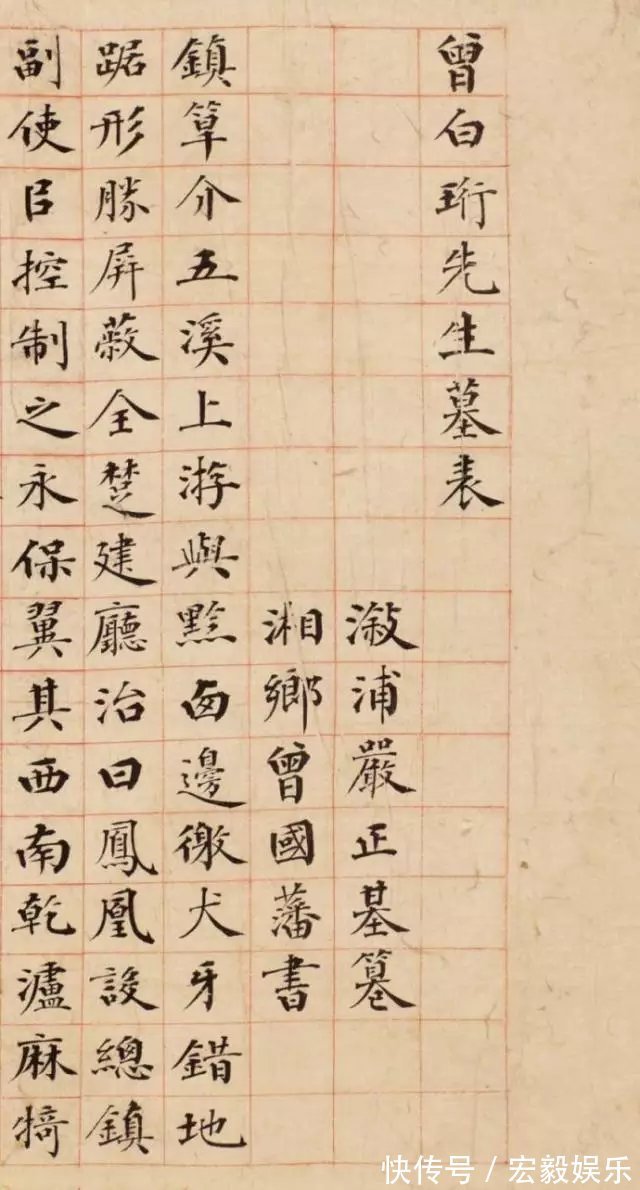 曾白珩先生墓表
溆浦嚴正基篹
湘鄉曾國藩書
鎮筸介五溪上游與黔西邊徼犬牙錯地
踞形勝屏蔽全楚建廳治曰鳳凰設總鎮
副使臣控制之永保翼其西南乾瀘麻犄
快传号／宏毅娱乐